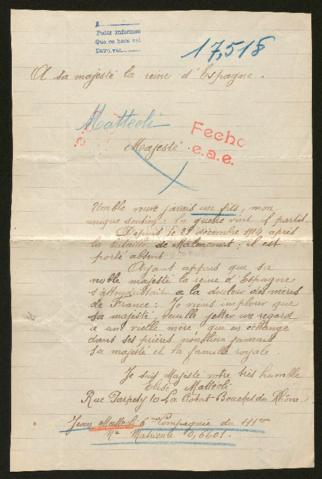 Pedir informes
Que se haga así
17,518
A sa majesté la reine d'Espagne.
Matteoli
Fecho
e.a.e.
Majesté
veuve j'avais un fils, mon
unique soutien: la guerre vint il partit
Depuis le 29 décembre 1914 après
la bataille de Malancourt, il est
porté absent
Ayant appris que sa
noble majesté la reine d'Espagne
à la douleur des mères
de France: Je viens implorer que
sa majesté, veuille jetter un regard
a une vieille mère, que en échange
dans ses prières n'oubliera jamais
sa majesté et sa famille royale
Je suis Majesté votre très humble
Matteoli
Rue 10 La Ciotat Bouches du Rhône
Jean Matteoli 6e Compagnie du 111e
No Matricule 0,6601.